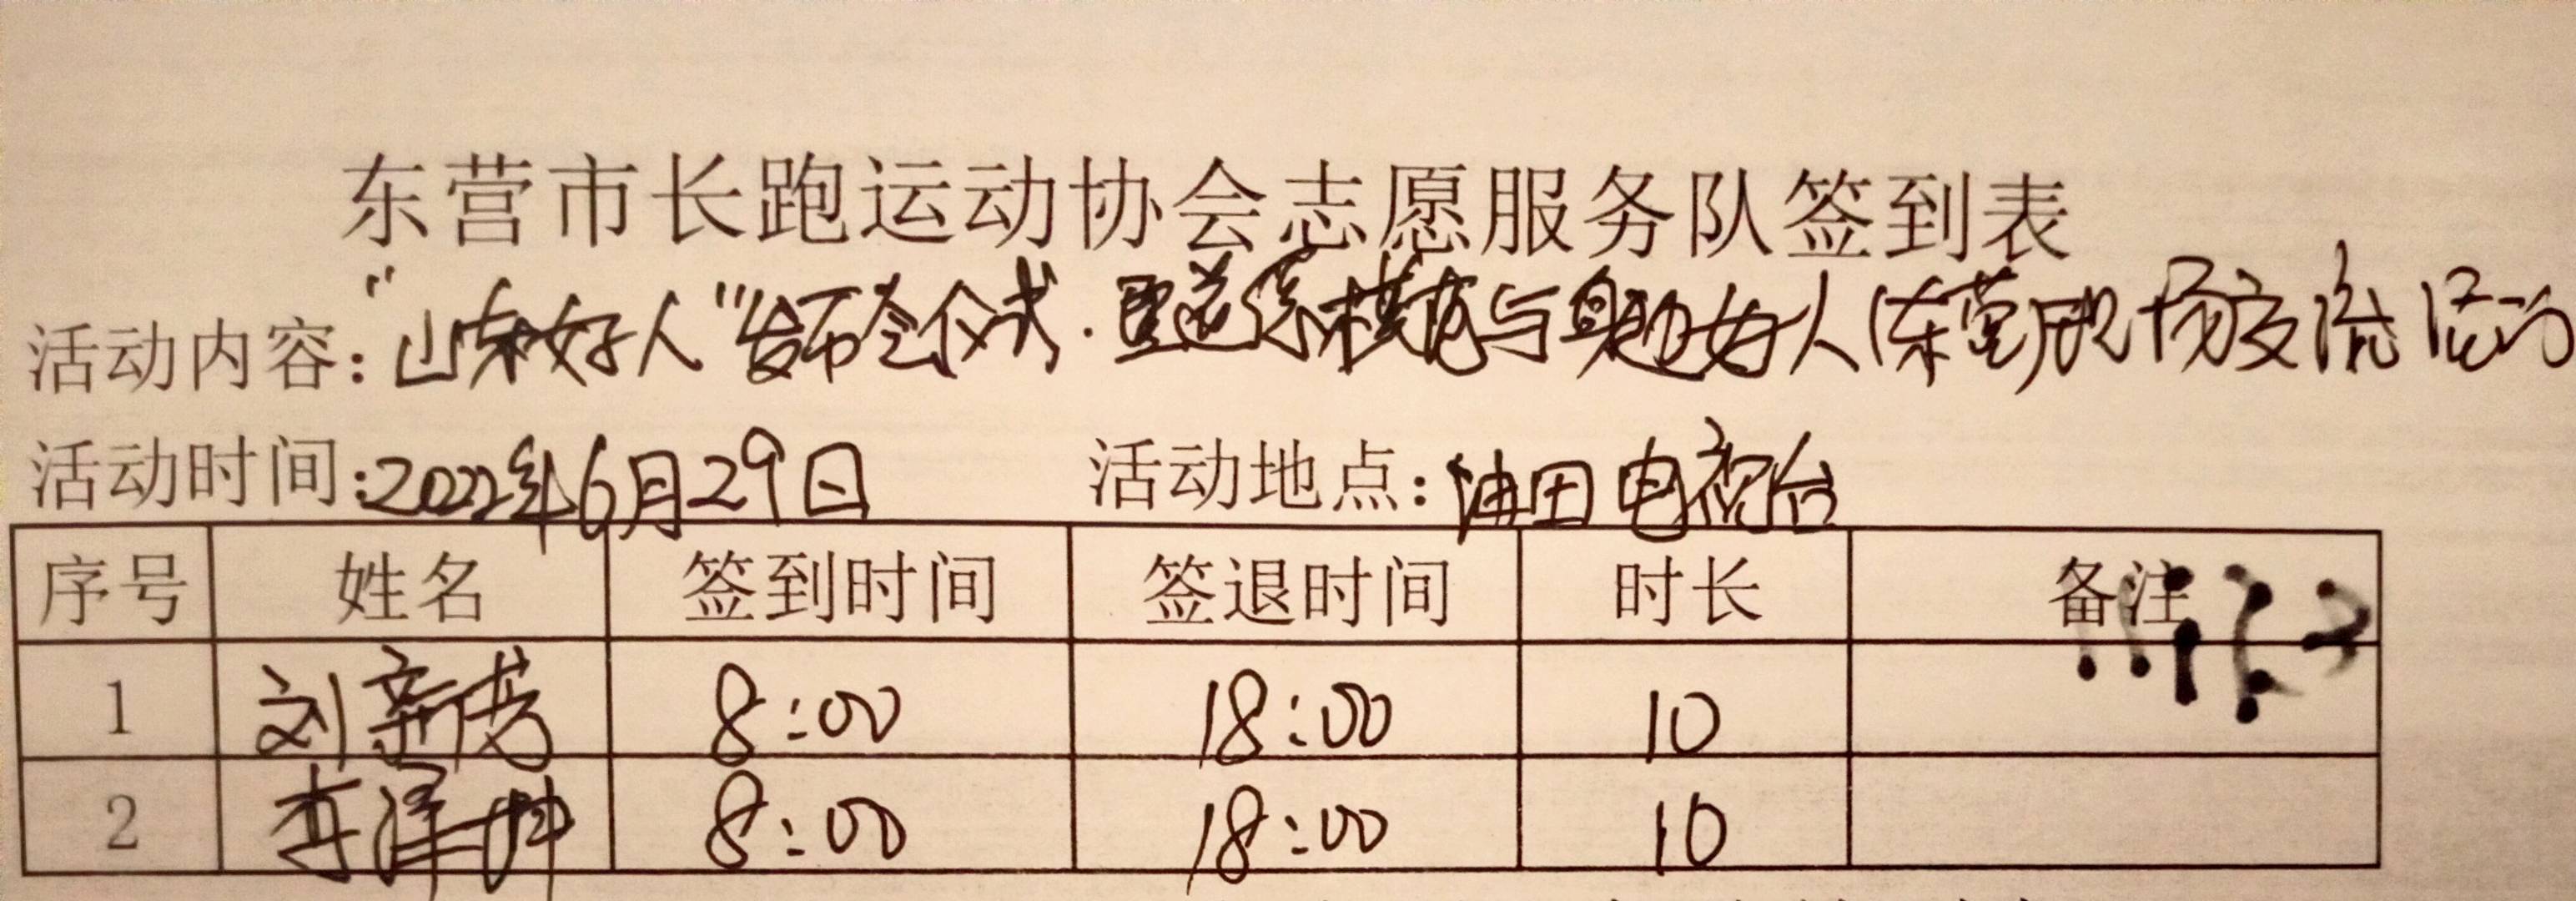 东营市长跑运动协会志愿服务队签到表
活动内容："山东好人"发布仪式.道德模范与身边好人(东营)现场交流活动
活动时间:2022年6月29日 活动地点:油田电视台
序号 姓名 签到时间 签退时间 时长 备注
1 刘新 8:00 18:00 10
2 李泽坤 8:00 18:00 10